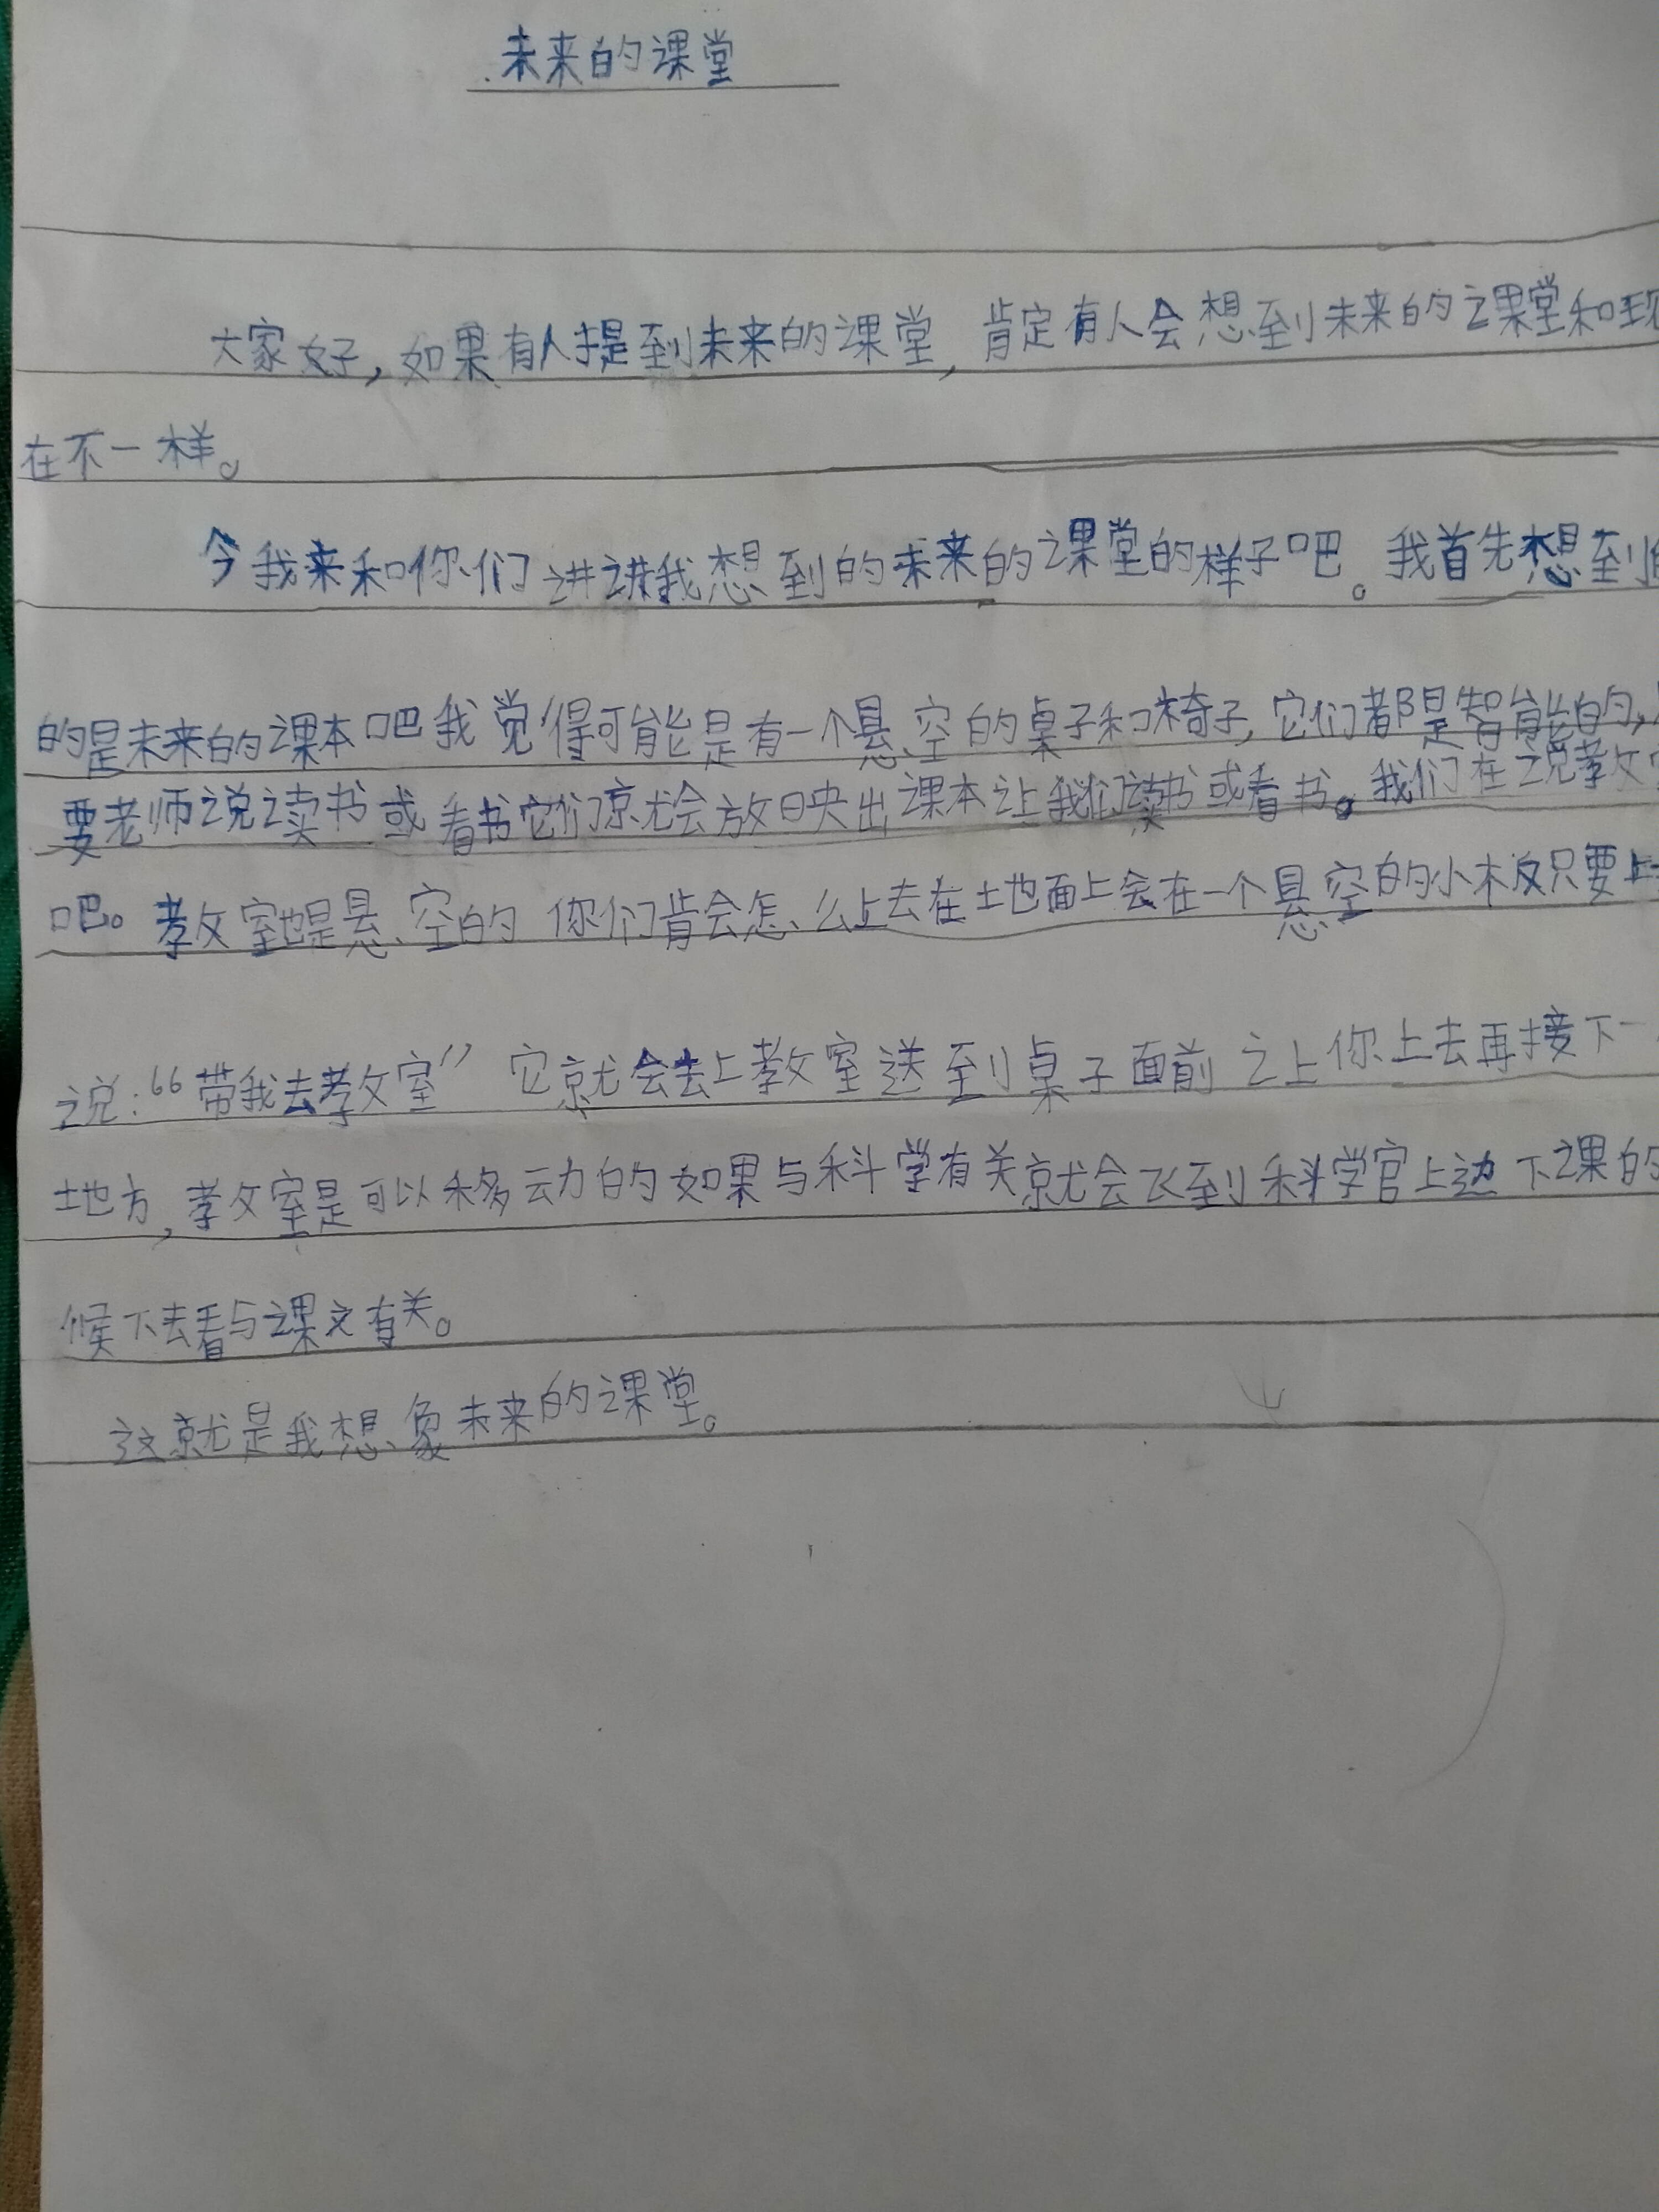 未来的课堂
大家好，如果有人提到未来的课堂，肯定有人会想到未来的课堂和现
在不一样。
今我来和你们讲讲我想到的未来的课堂的样子吧。我首先想到
的是未来的课本吧我觉得可能是有一个悬空的桌子和椅子，它们都是智能的，
要老师说读书或看书它们就会放映出课本让我们读书或看书。我们在说教
吧。教室也是悬空的 你们肯会怎么上去在地面上会在一个悬空的小木板只要上
说：“带我去教室” 它就会去上教室送到桌子面前 让你上去再接下一
地方，教室是可以移动的如果与科学有关就会飞到科学官上边 下课的
候下去看与课文有关。
这就是我想象未来的课堂。